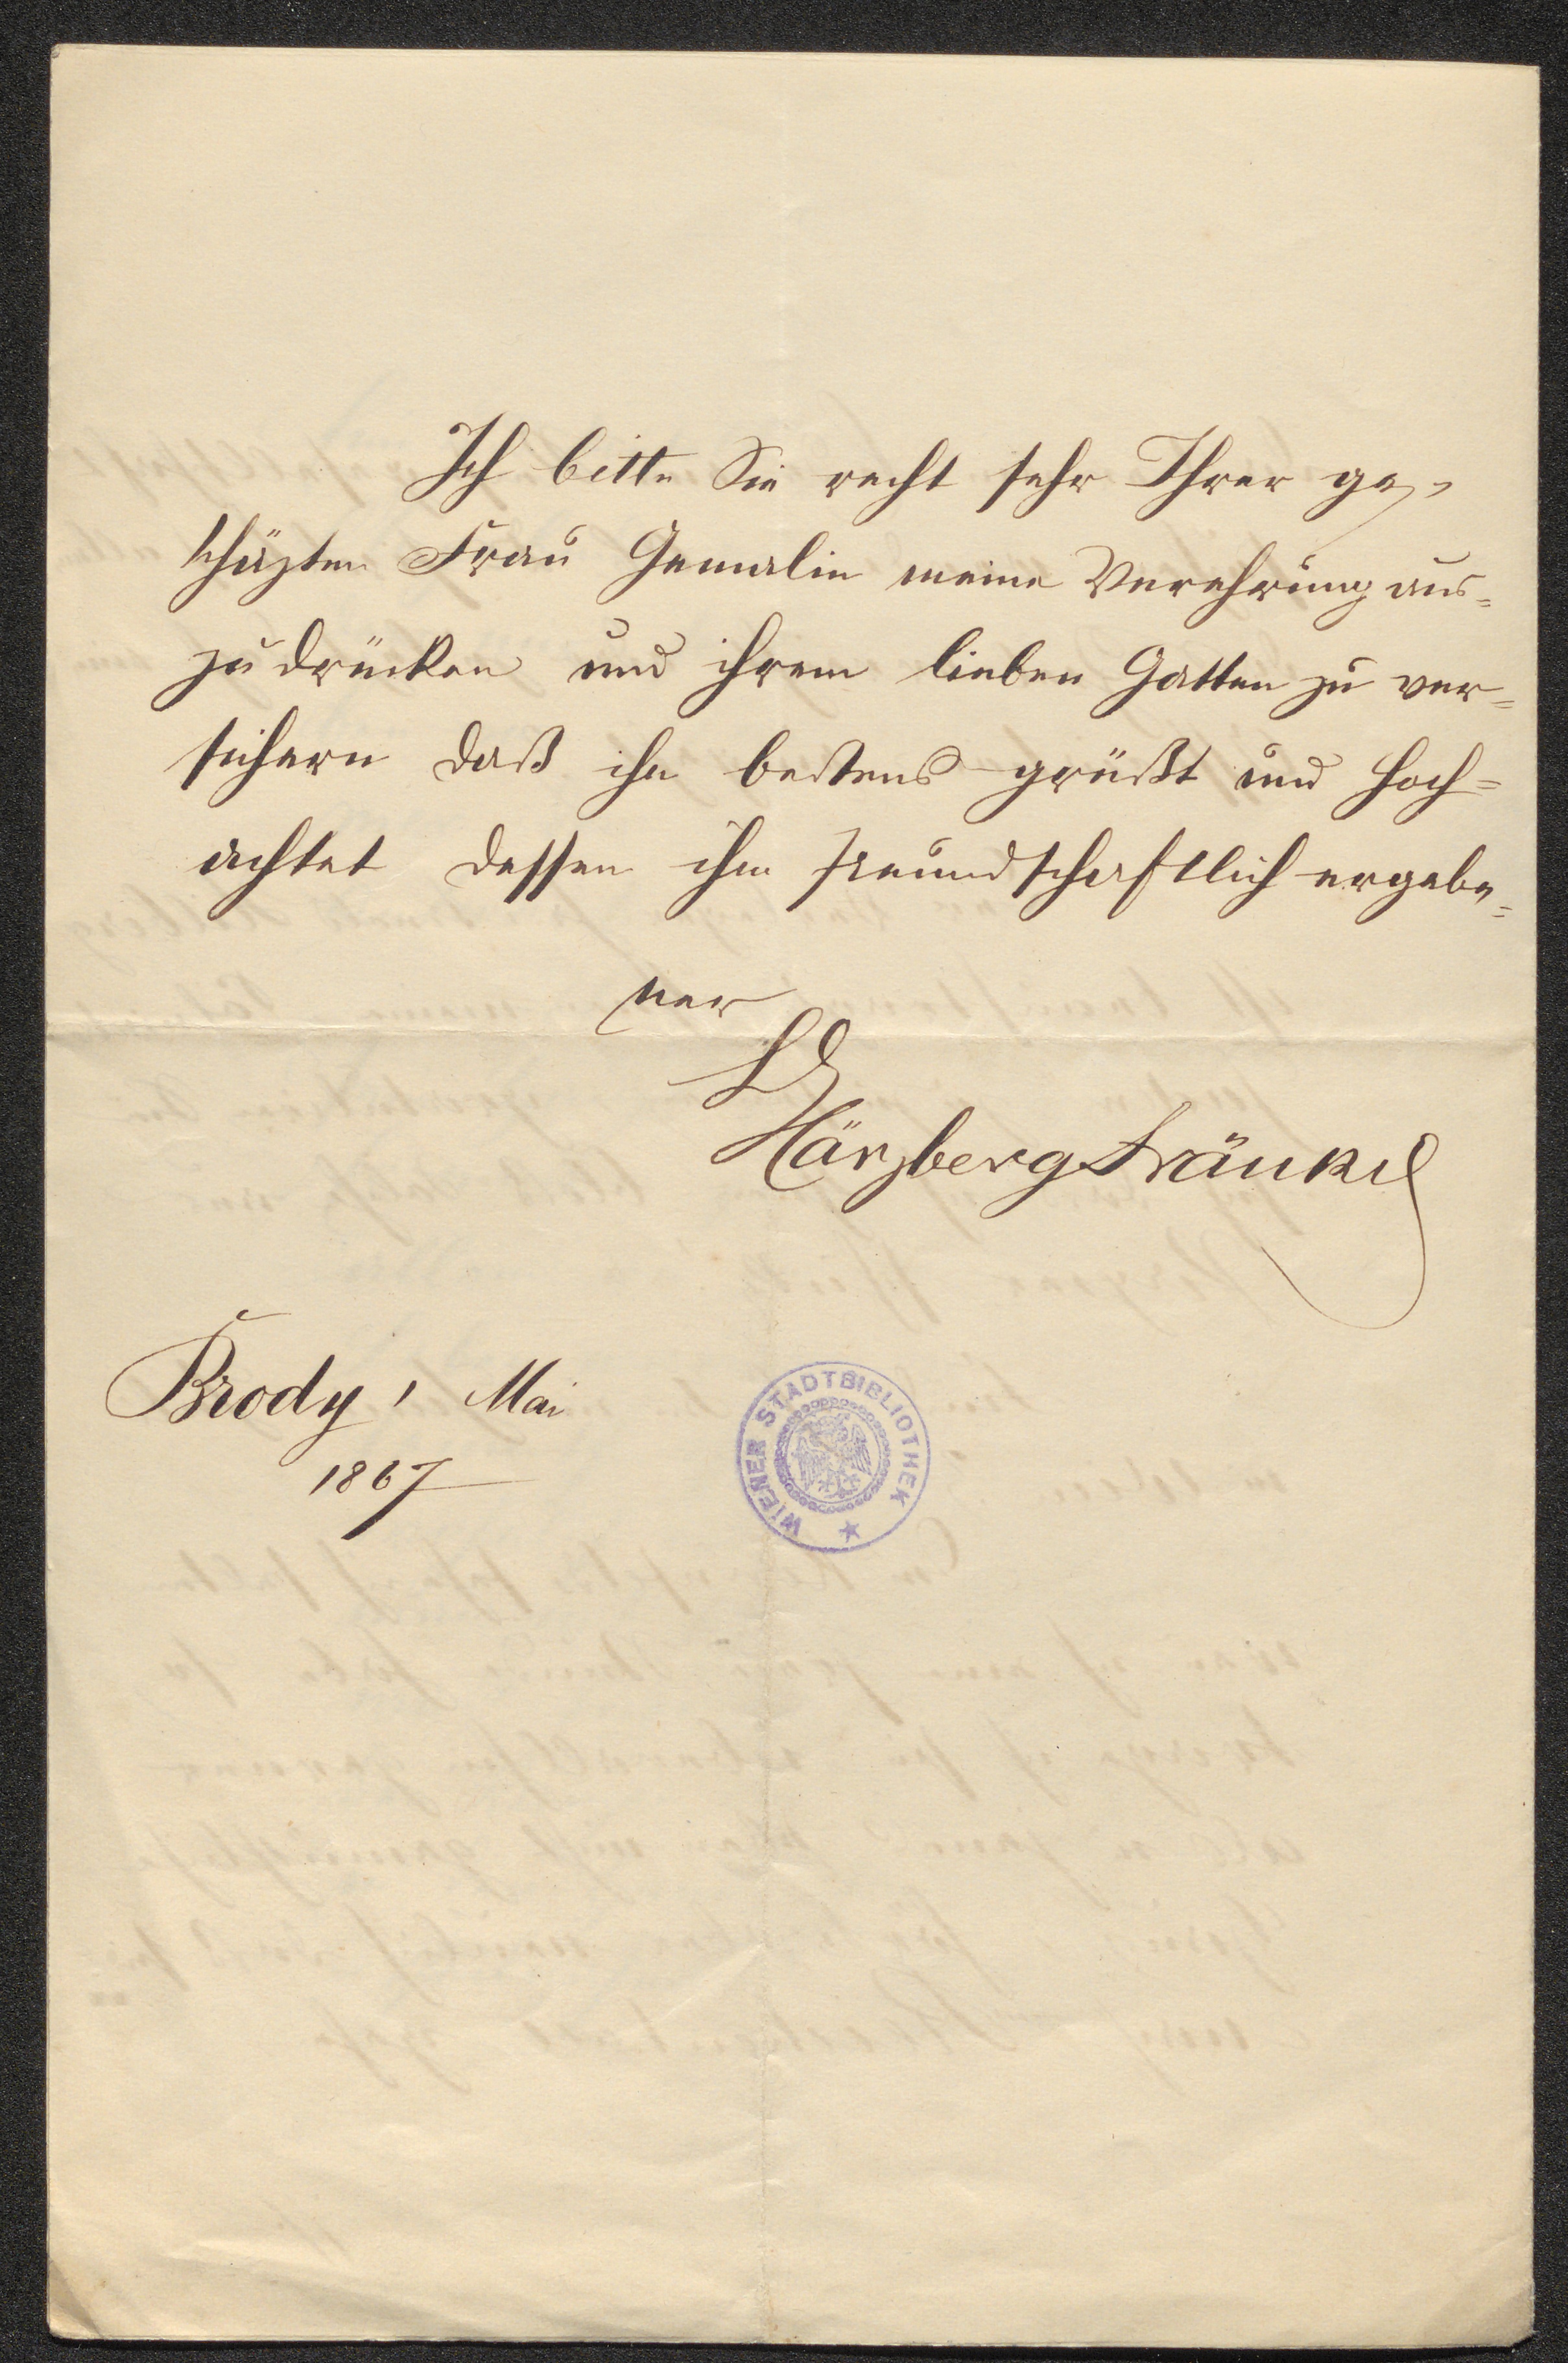 Ich bitte Sie recht sehr Ihrer ge-
schäzten Frau Gemalin meine Verehrung aus=
zudrücken und ihrem lieben Gatten zu ver=
sichern daß ihn bestens grüßt und hoch=
achtet dessen ihm freundschaftlich ergebe=
ner
Härzberg Fränkel
Brody, Mai
1867
WIENER STADTBIBLIOTHEK